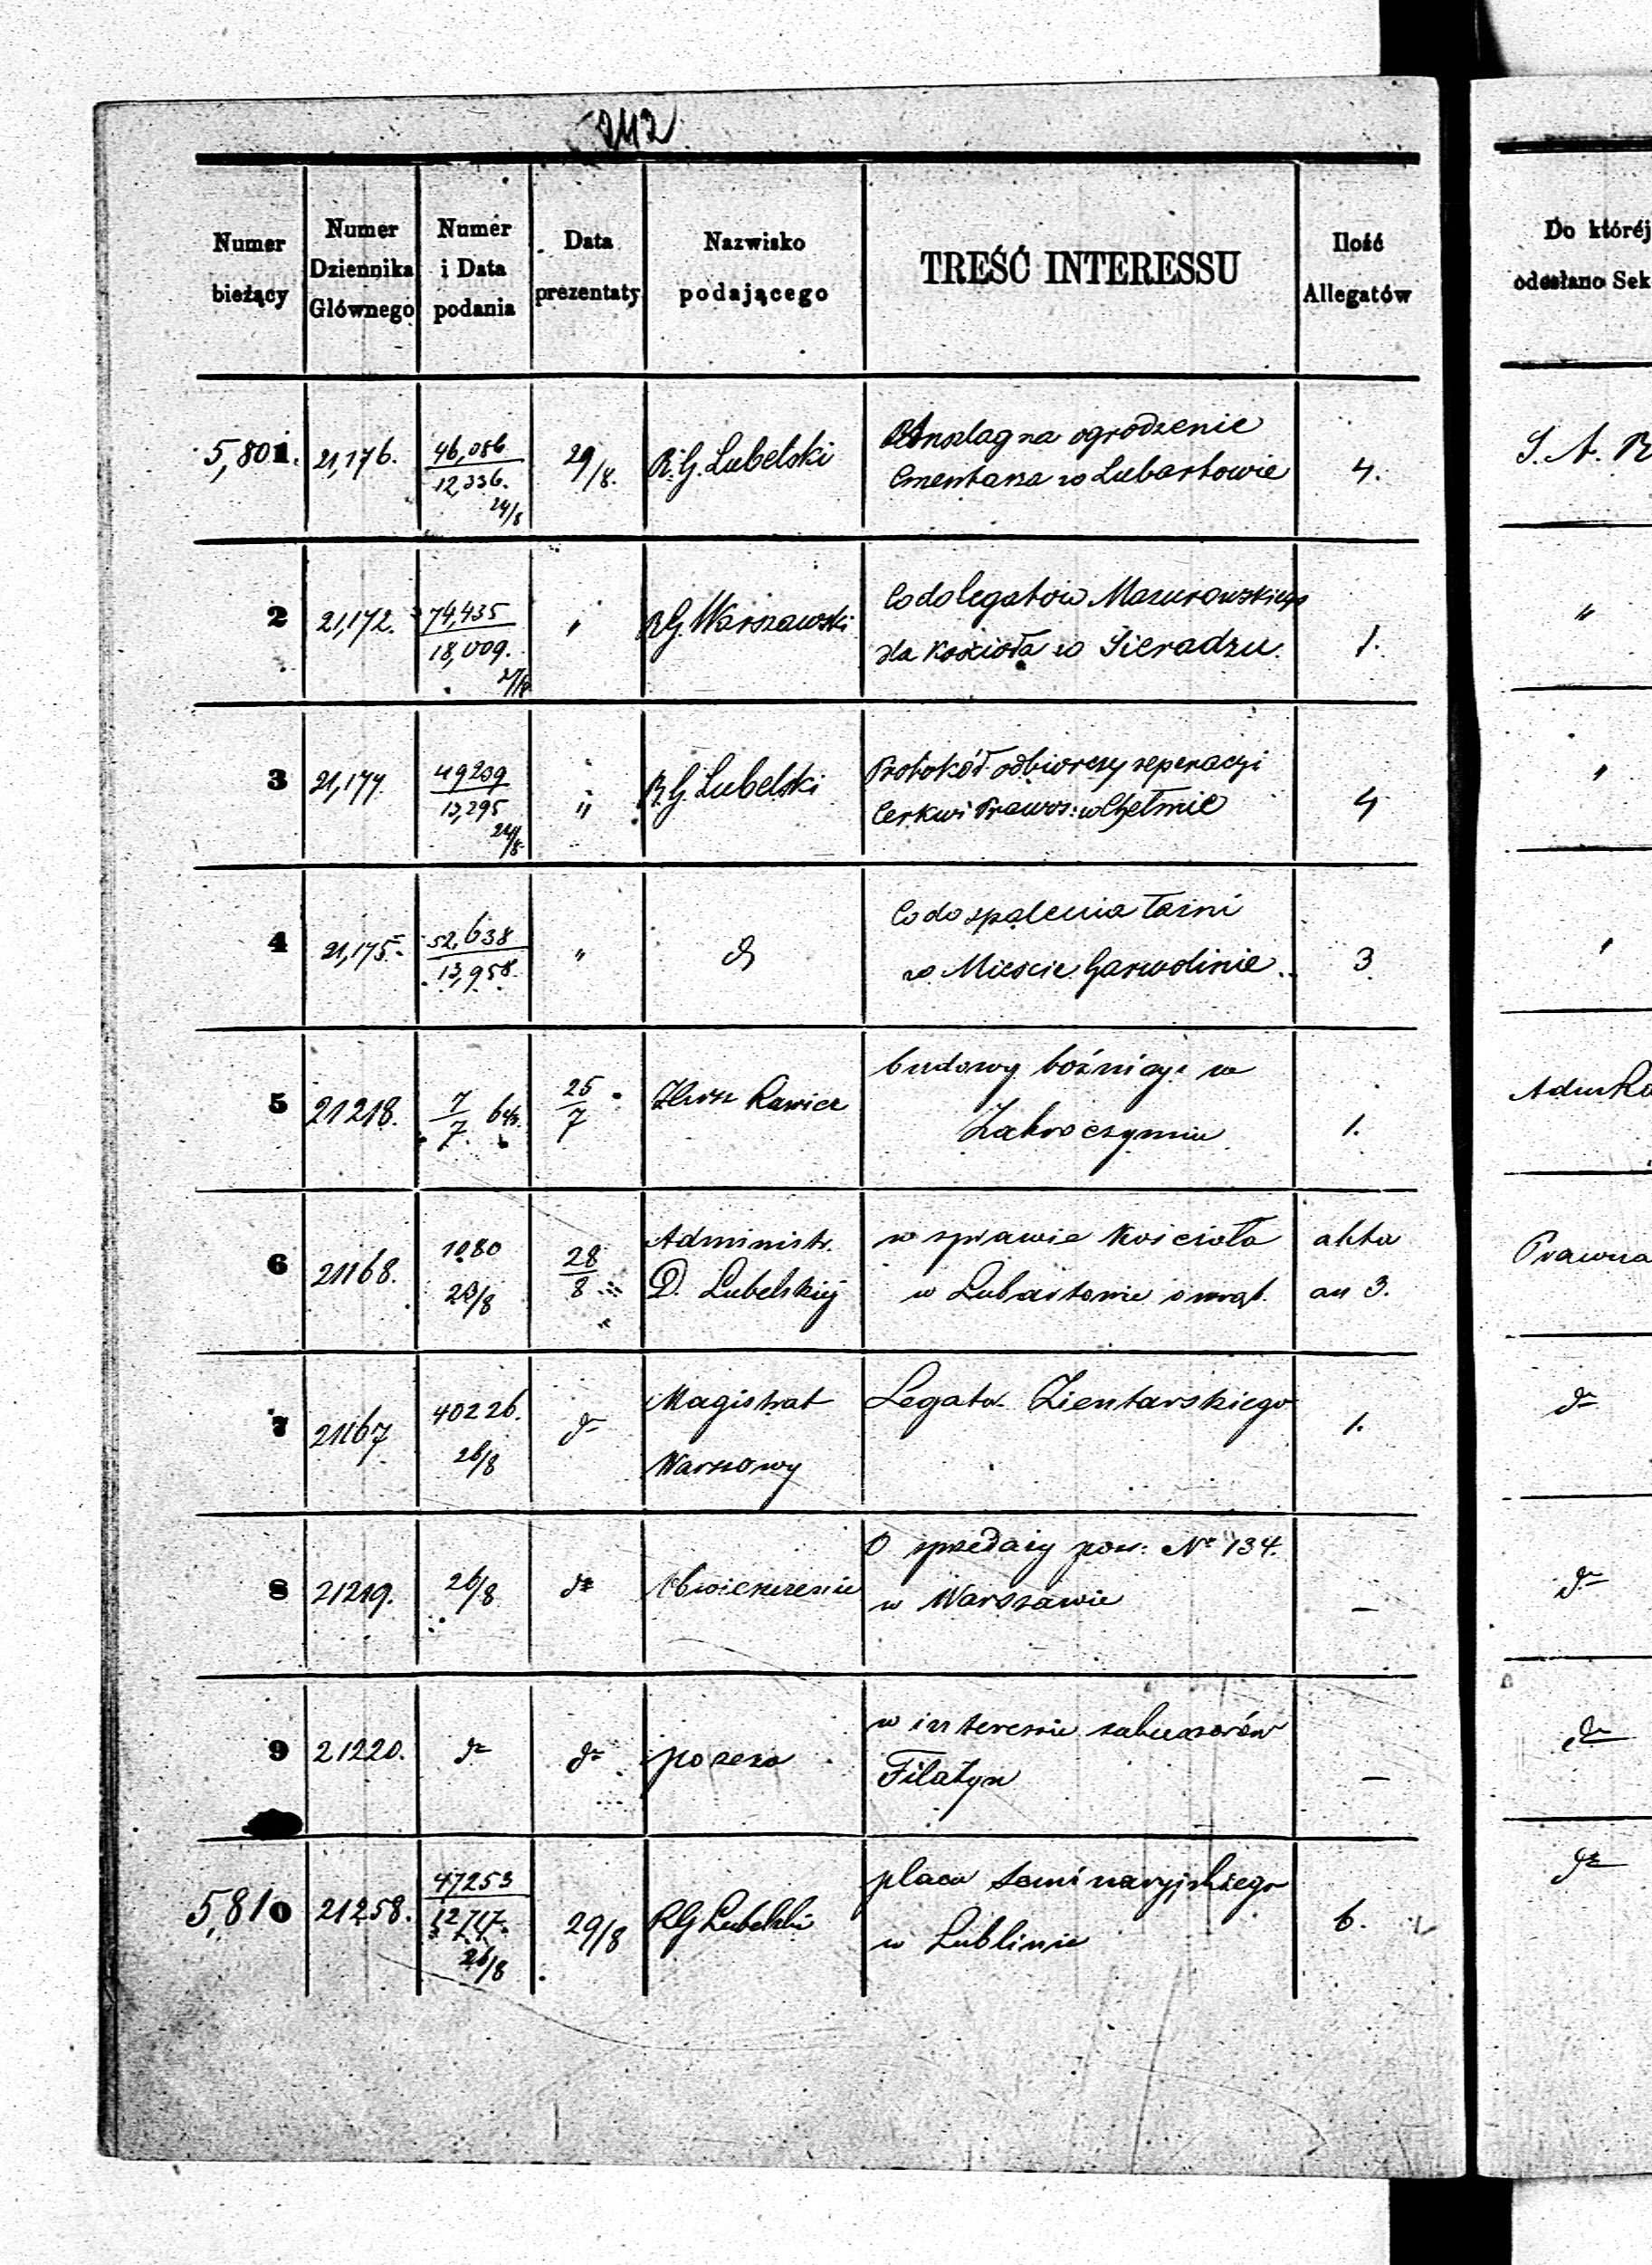 242
Numer bieżący
Numer Dziennika Głównego
Numer i Data podania
Data prezentaty
Nazwisko podającego
TREŚĆ INTERESSU
Ilość Allegatów
Do któréj odesłano Sek
5,801. 21,176. 46,086 29/8. R.G. Lubelski Anszlag na ogrodzenie 4. S. A.
12,336. Cmentarza w Lubartowie
24/8
2 21,172. 74,435 " RG. Warszawski Co do legatow Mazurowskiego 1. "
18,009. dla Kościoła w Sieradzu.
3 21,177. 49239 " R.G. Lubelski Protokół odbiorczy reperacyi 4 "
13,295 Cerkwi Prawos: w Chełmie
24/8
4 21,175. 52,638 " do Co do spalenia łaźni 3 "
13,958. w Mieście Garwolinie.
5 21218. 7/7 64r. 25/7 Rawicz budowy bóźnicy w 1.
Zakroczymiu
6 21168. 1080 28/8 Administr. w sprawie Kościoła akta Prawna
23/8 D. Lubelskiej w Lubartowie an 3.
7 21167 40226. do Magistrat Legatu Zientarskiego 1. do
26/8 Warszawy
8 21219. 26/8 do O sprzedaży pos: No 134. — do
w Warszawie
9 21220. do do w interessie — do
Filatyn
5,810 21258. 47253 29/8 RG Lubelski placu seminaryjskiego 6. do
12717. w Lublinie
26/8